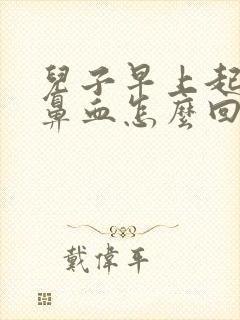 兒子早上起
鼻血怎麼回
戴偉平